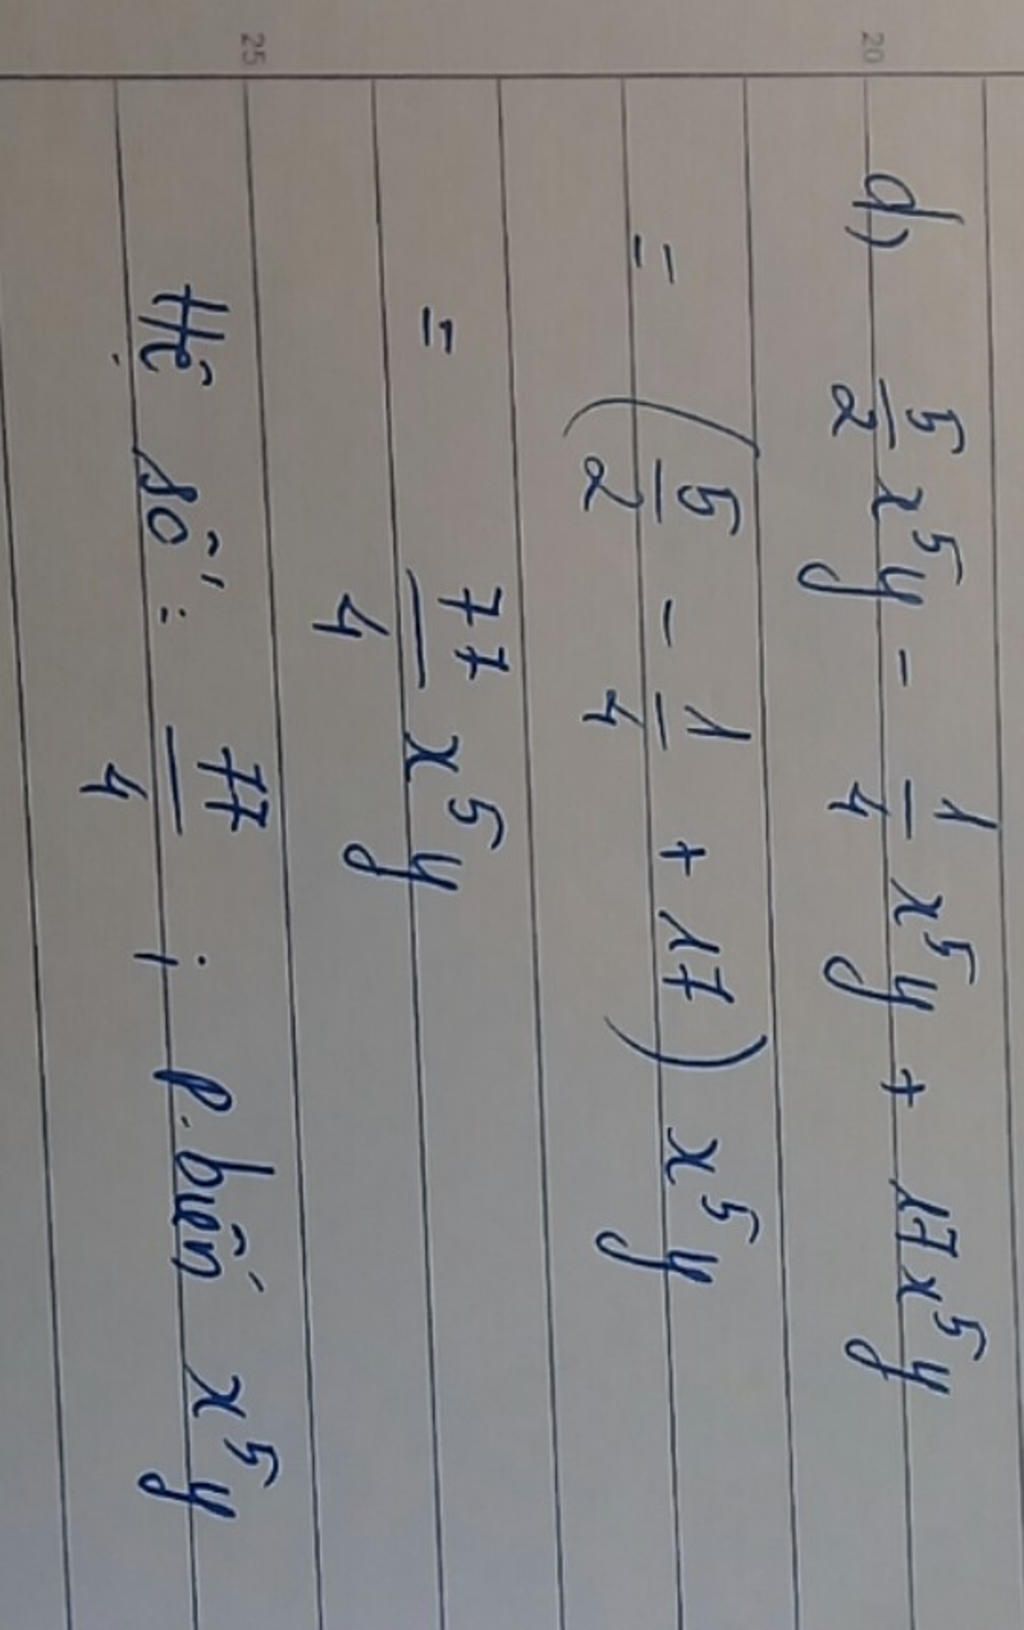 20
d) 5/2 x⁵y - 1/4 x⁵y + 17x⁵y
= (5/2 - 1/4 + 17) x⁵y
= 77/4 x⁵y
25
Hệ số: 77/4 ; p.biến x⁵y